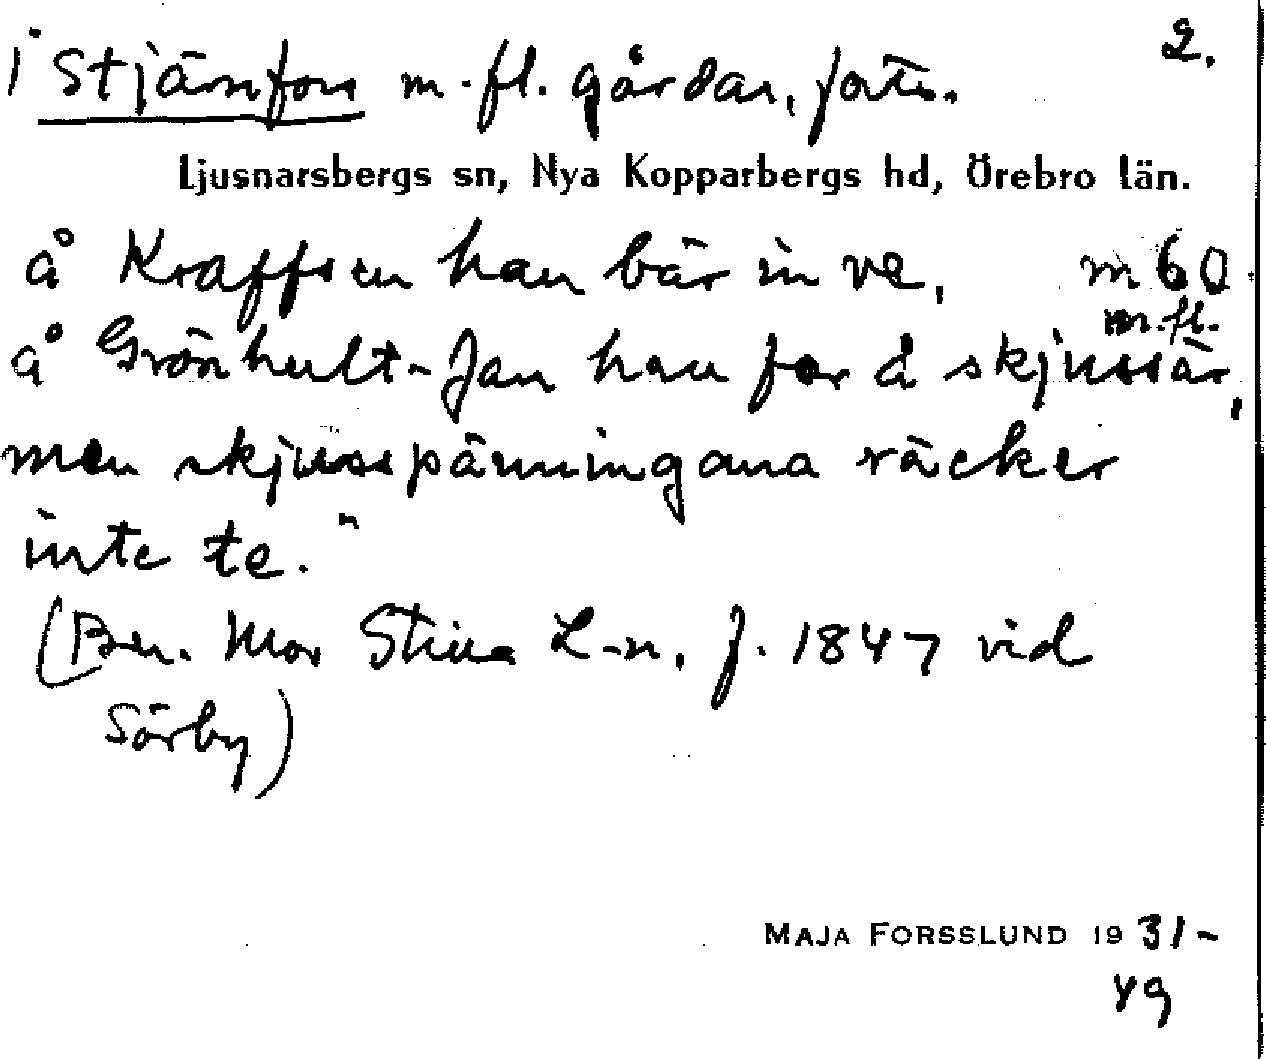 i Stjärnfors m.fl. gårdar, forts. 2.
Ljusnarsbergs sn, Nya Kopparbergs hd, Örebro län.
å Kraffsen han bär in ve, m 60
m.fl.
å Grönhult-Jan han far å skjussär,
men skjusspänningana räcker
inte te."
(Ber. Mor Stina L-n, f. 1847 vid
Sörby)
MAJA FORSSLUND 1931-
49